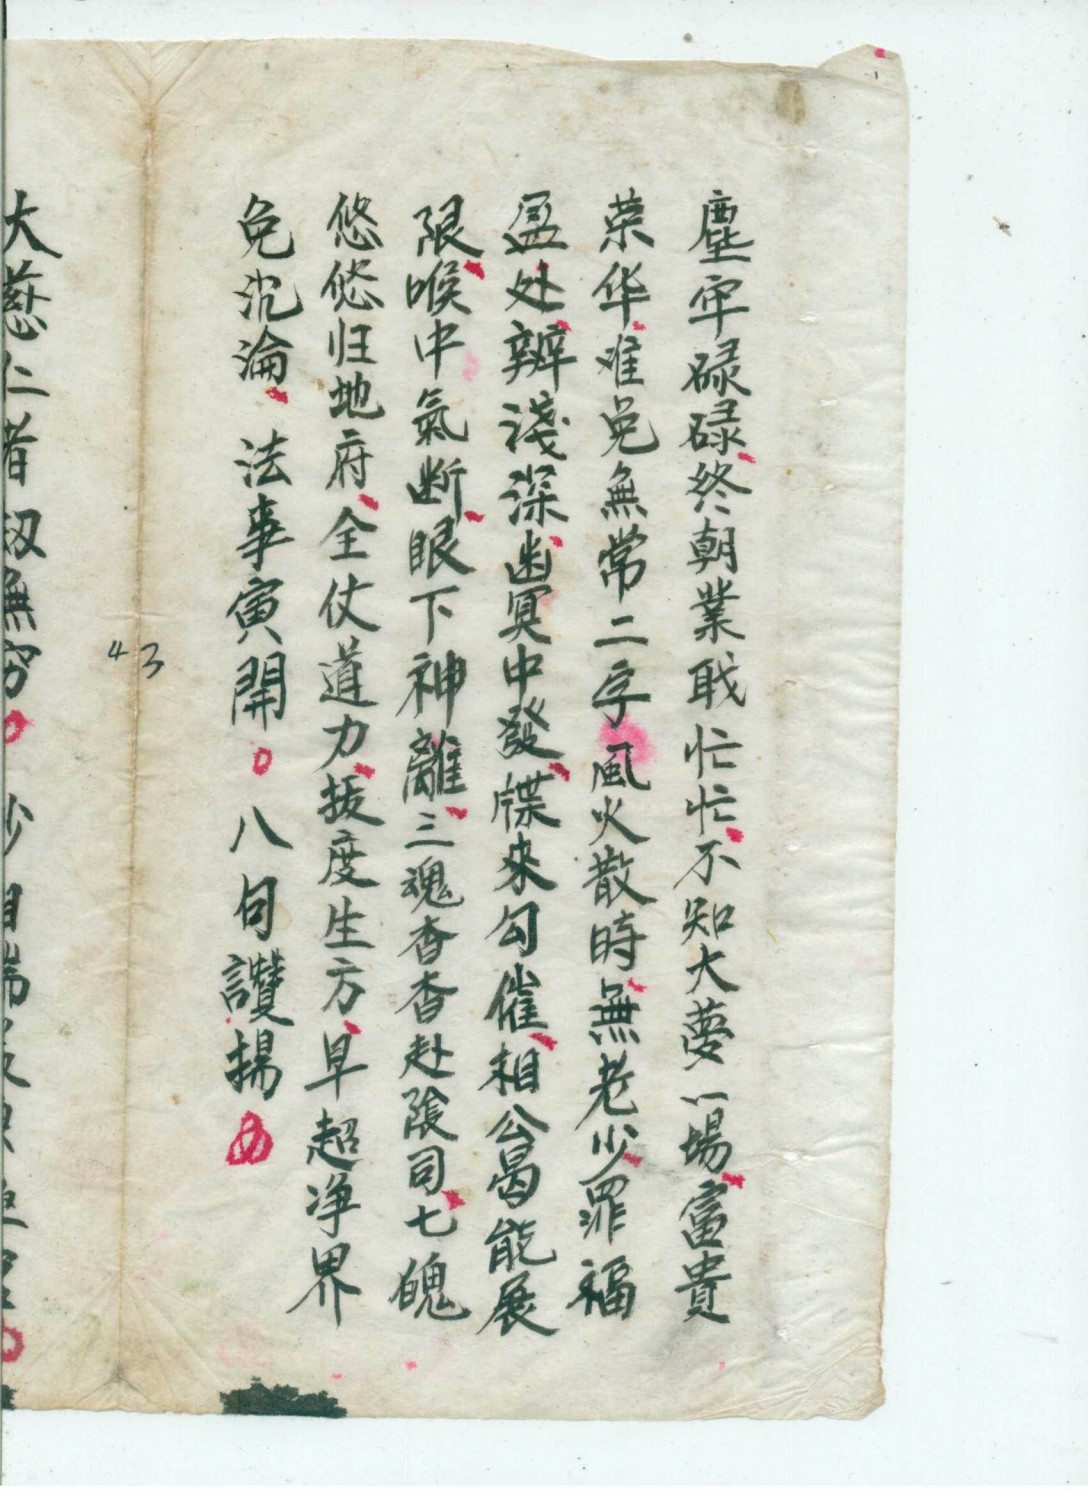 塵牢碌碌、终朝業戝忙忙、不知大夢一場、富貴
荣华、难免無常二字風火散時、無老少、罪福
盈处、辨淺深、幽冥中發、牒來勾催、相公曷能展
限、喉中氣断、眼下神離、三魂杳杳赴隂司、七魄
悠悠归地府、全仗道力、拔度生方、早超净界
免沉淪、法事寅開。八句讚揚
43
大慈仁者叔無穷。